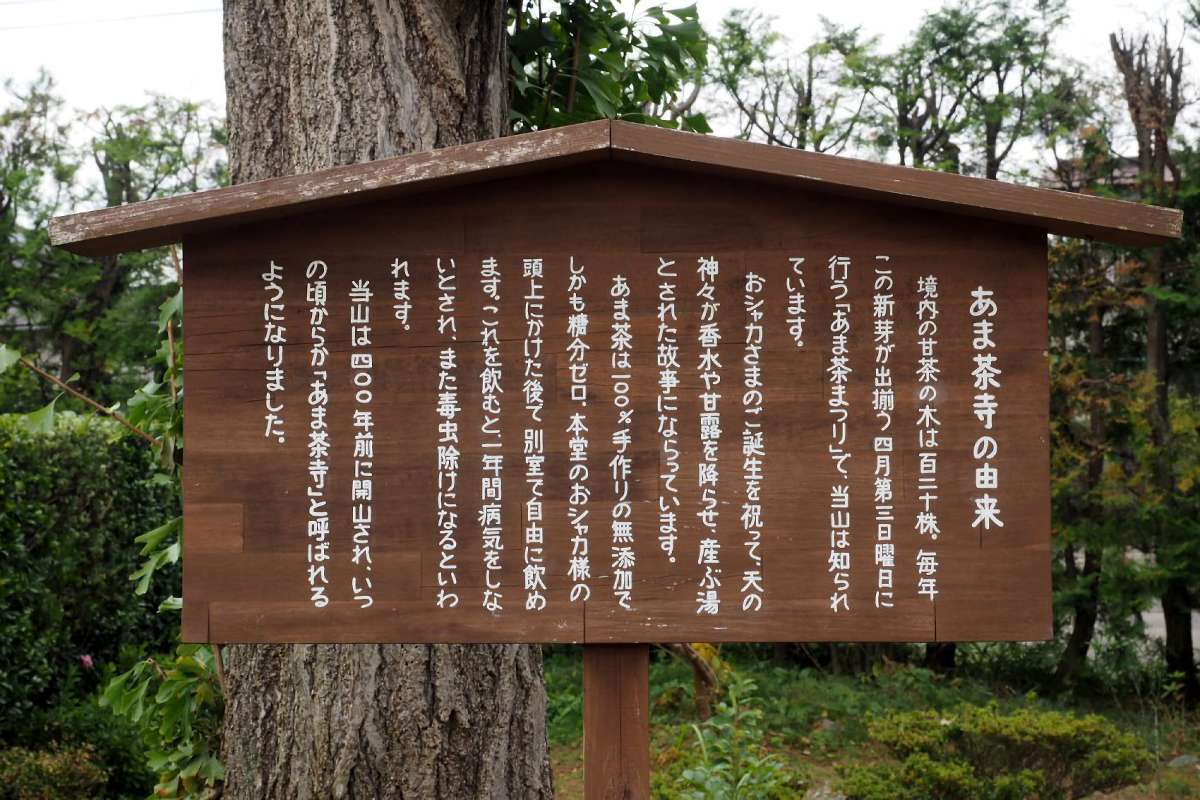 あま茶寺の由来
境内の甘茶の木は百二十株。毎年
この新芽が出揃う四月第三日曜日に
行う「あま茶まつり」で、当山は知られ
ています。
おシャカさまのご誕生を祝って、天の
神々が香水や甘露を降らせ、産ぶ湯
とされた故事にならっています。
あま茶は一〇〇%手作りの無添加で
しかも糖分ゼロ、本堂のおシャカ様の
頭上にかけた後で別室で自由に飲め
ます。これを飲むと一年間病気をしな
いとされ、また毒虫除けになるといわ
れます。
当山は四〇〇年前に開山され、いつ
の頃からか「あま茶寺」と呼ばれる
ようになりました。